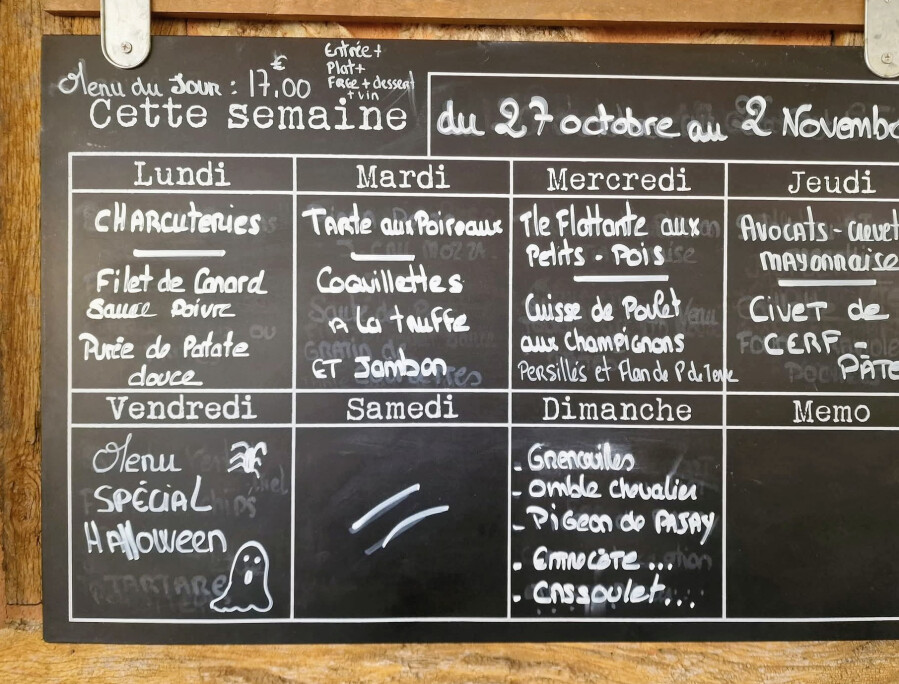 Menu du Jour : 17,00 €
Entrée +
Plat +
FRGE + dessert
+ vin
Cette semaine
du 27 octobre au 2 Novemb
Lundi
CHARCUTERIES
Filet de Canard
Sauce Poivre
Purée de Patate
douce
Mardi
TARTE aux Poireaux
Coquillettes
A La TRUFFE
ET Jambon
Mercredi
Ile Flottante aux
Petits - Pois
Cuisse de Poulet
aux Champignons
PERSILLÉS et Flan de P de Terre
Jeudi
AVOCATS - crevet
MAYONNAISE
CIVET de
CERF -
PÂTE
Vendredi
Menu
SPÉCIAL
Halloween
Samedi
Dimanche
- Grenouilles
- Omble Chevalier
- Pigeon de PASAY
- Entrecôte ...
- CASSOULET...
Memo